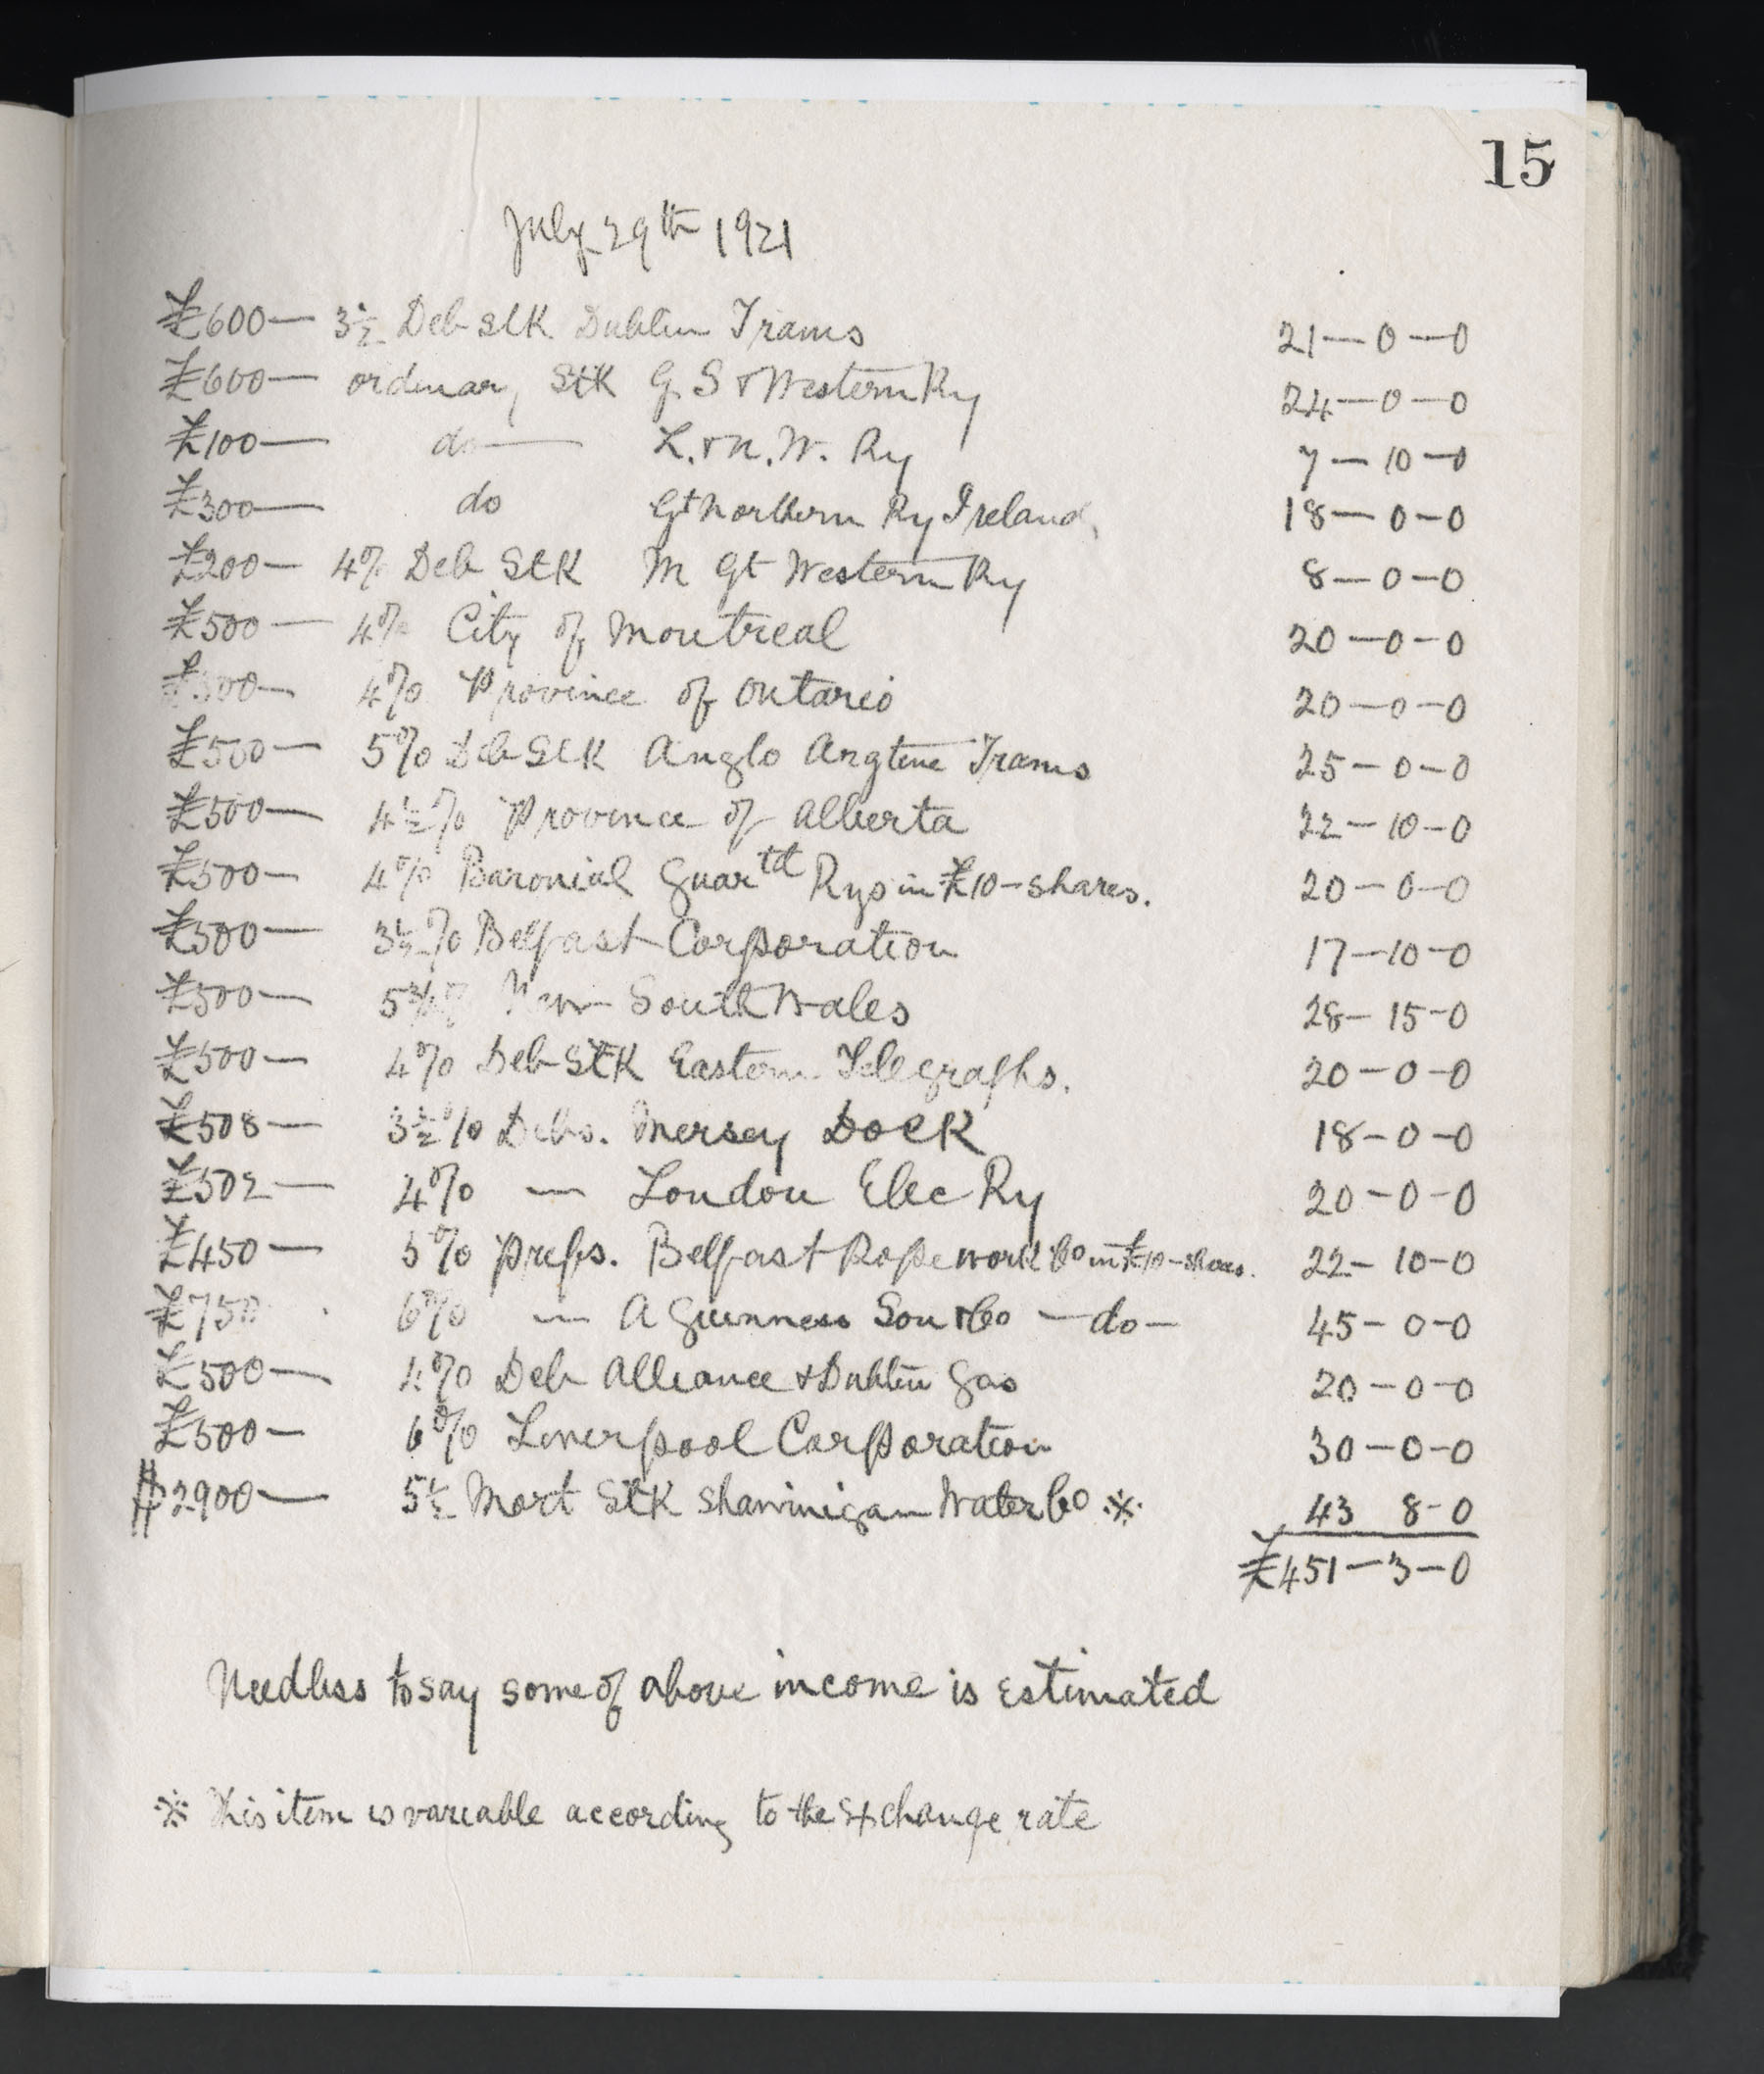 15
July 29th 1921
£600— 3½ Deb Stk Dublin Trams 21—0—0
£600— ordinary Stk G. S & Western Ry 24—0—0
£100— do— L. & N. W. Ry 7—10—0
£300— do Gt Northern Ry Ireland. 18—0—0
£200— 4% Deb Stk M Gt Western Ry 8—0—0
£500— 4% City of Montreal 20—0—0
£500— 4% Province of Ontario 20—0—0
£500— 5% Deb Stk Anglo Argtine Trams 25—0—0
£500— 4½% Province of Alberta 22—10—0
£500— 4% Baronial Guartd Rys in £10—shares. 20—0—0
£500— 3½% Belfast Corporation 17—10—0
£500— 5¾% New South Wales 28—15—0
£500— 4% Deb Stk Eastern Telegraphs. 20—0—0
£508— 3½% Debs. Mersey Dock 18—0—0
£502— 4% — London Elec Ry 20—0—0
£450— 5% Prefs. Belfast Ropework Co in £10—shares. 22—10—0
£750 6% — A Guinness Son & Co —do— 45—0—0
£500— 4% Deb Alliance & Dublin Gas 20—0—0
£500— 6% Liverpool Corporation 30—0—0
$2900— 5½ Mort Stk Shawinigan Water Co ※ 43 8—0
£451—3—0
Needless to say some of above income is estimated
※ This item is variable according to the exchange rate